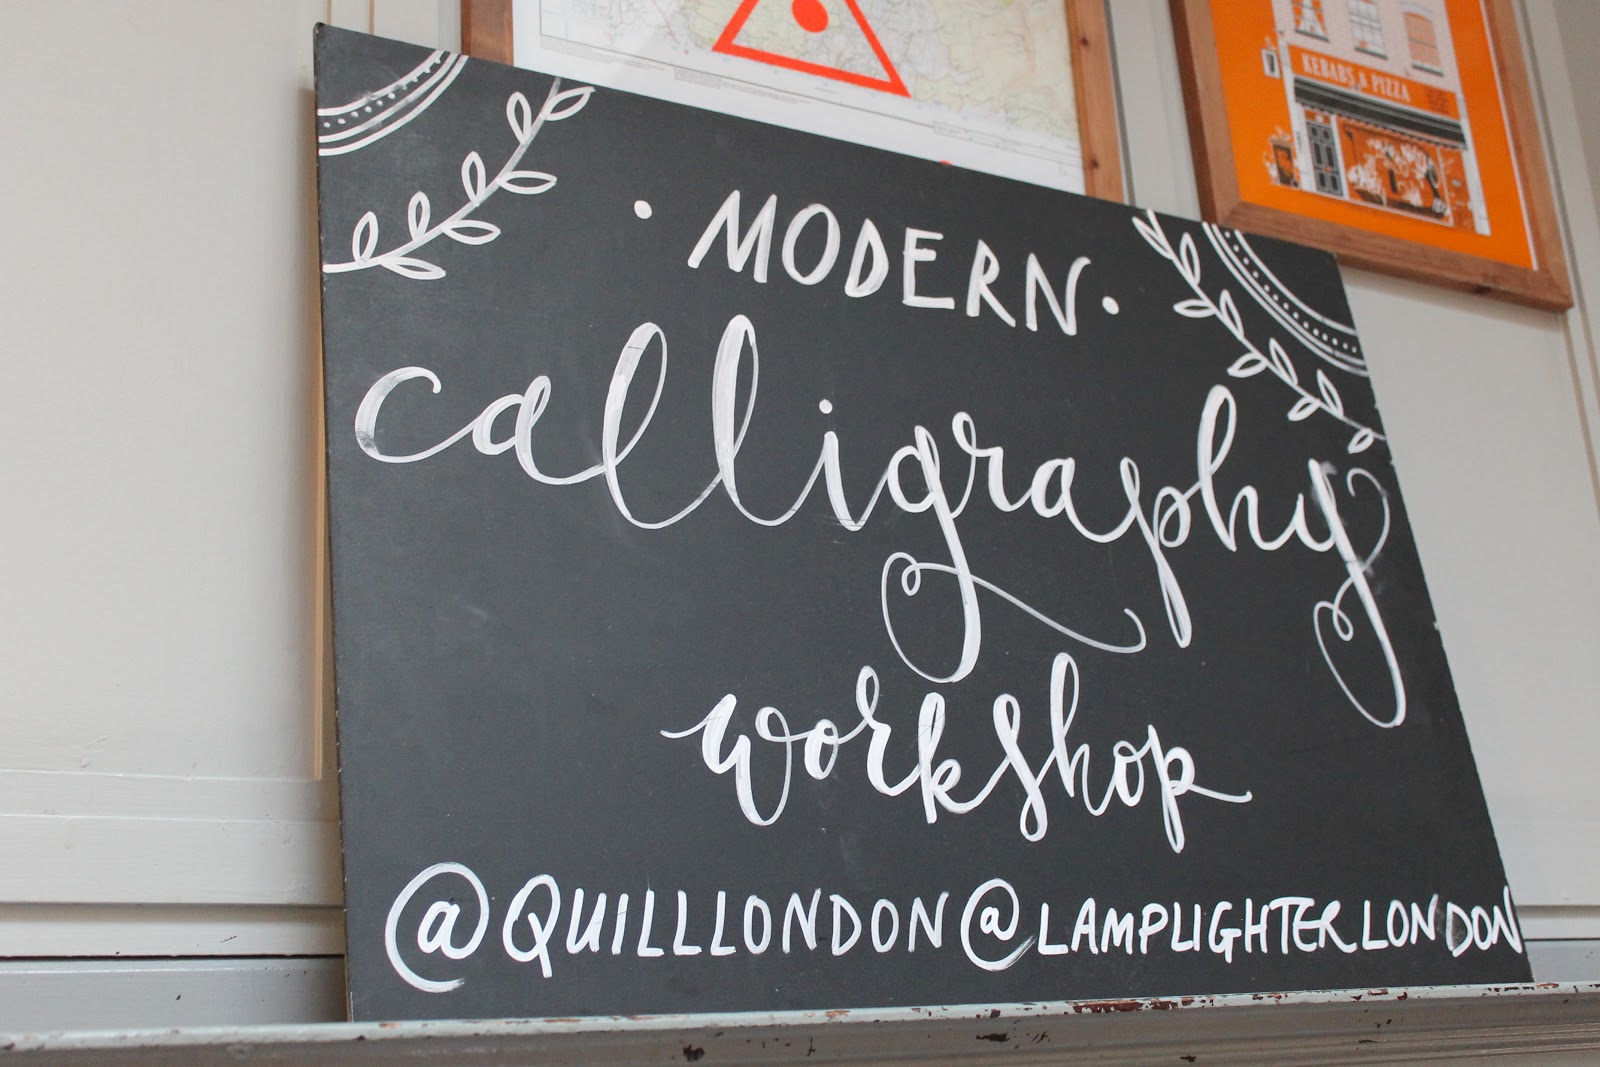 KEBABS & PIZZA
• MODERN •
calligraphy
workshop
@QUILLLONDON @LAMPLIGHTERLONDON